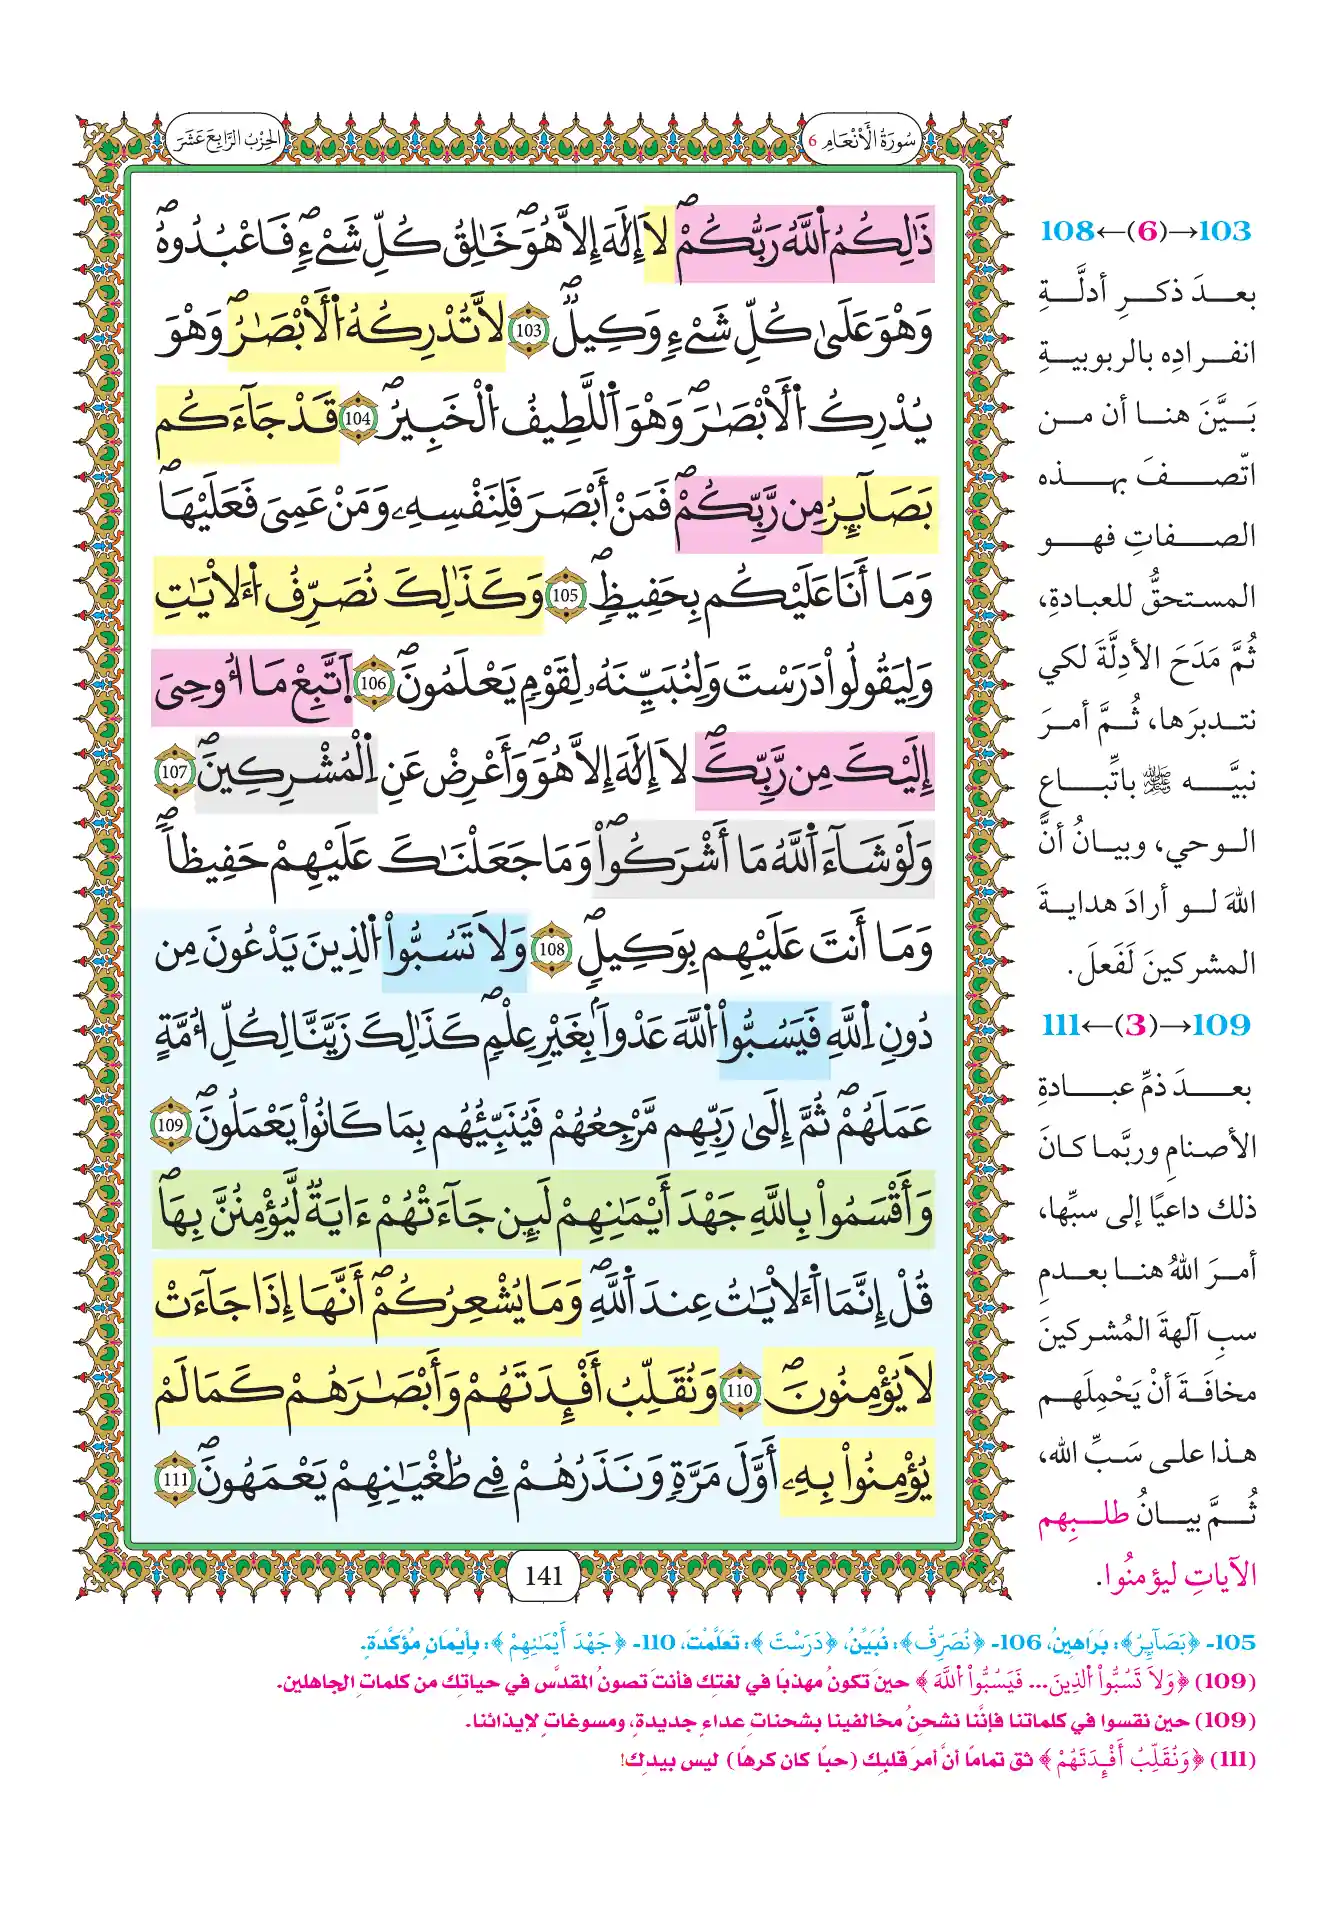 سُورَةُ الْأَنْعَامِ 6
الحِزْبُ الرَّابِعَ عَشَرَ
ذَٰلِكُمُ اُ۬للَّهُ رَبُّكُمْۖ لَآ إِلَٰهَ إِلَّا هُوَۖ خَٰلِقُ كُلِّ شَےْءٖ فَاعْبُدُوهُۖ
وَهْوَ عَلَىٰ كُلِّ شَےْءٖ وَكِيلٞۖ 103 لَّا تُدْرِكُهُ اُ۬لْأَبْصَٰرُۖ وَهْوَ
يُدْرِكُ اُ۬لْأَبْصَٰرَۖ وَهْوَ اَ۬للَّطِيفُ اُ۬لْخَبِيرُۖ 104 قَدْ جَآءَكُم
بَصَآئِرُ مِن رَّبِّكُمْۖ فَمَنْ أَبْصَرَ فَلِنَفْسِهِۦ وَمَنْ عَمِيَ فَعَلَيْهَاۖ
وَمَآ أَنَا عَلَيْكُم بِحَفِيظٖۖ 105 وَكَذَٰلِكَ نُصَرِّفُ اُ۬لْأٓيَٰتِ
وَلِيَقُولُواْ دَرَسْتَ وَلِنُبَيِّنَهُۥ لِقَوْمٖ يَعْلَمُونَۖ 106 اَ۪تَّبِعْ مَآ أُوحِيَ
إِلَيْكَ مِن رَّبِّكَۖ لَآ إِلَٰهَ إِلَّا هُوَۖ وَأَعْرِضْ عَنِ اِ۬لْمُشْرِكِينَۖ 107
وَلَوْ شَآءَ اَ۬للَّهُ مَآ أَشْرَكُواْۖ وَمَا جَعَلْنَٰكَ عَلَيْهِمْ حَفِيظاٗۖ
وَمَآ أَنتَ عَلَيْهِم بِوَكِيلٖۖ 108 وَلَا تَسُبُّواْ اُ۬لذِينَ يَدْعُونَ مِن
دُونِ اِ۬للَّهِ فَيَسُبُّواْ اُ۬للَّهَ عَدْواَۢ بِغَيْرِ عِلْمٖۖ كَذَٰلِكَ زَيَّنَّا لِكُلِّ أُمَّةٍ
عَمَلَهُمْۖ ثُمَّ إِلَىٰ رَبِّهِم مَّرْجِعُهُمْ فَيُنَبِّئُهُم بِمَا كَانُواْ يَعْمَلُونَۖ 109
وَأَقْسَمُواْ بِاللَّهِ جَهْدَ أَيْمَٰنِهِمْ لَئِن جَآءَتْهُمْ ءَايَةٞ لَّيُؤْمِنُنَّ بِهَاۖ
قُلْ إِنَّمَا اَ۬لْأٓيَٰتُ عِندَ اَ۬للَّهِۖ وَمَا يُشْعِرُكُمْۖ أَنَّهَآ إِذَا جَآءَتْ
لَا يُؤْمِنُونَۖ 110 وَنُقَلِّبُ أَفْـِٔدَتَهُمْ وَأَبْصَٰرَهُمْ كَمَا لَمْ
يُؤْمِنُواْ بِهِۦٓ أَوَّلَ مَرَّةٖ وَنَذَرُهُمْ فِي طُغْيَٰنِهِمْ يَعْمَهُونَۖ 111
141
103→(6)←108
بعدَ ذكرِ أدلَّةِ
انفرادِه بالربوبيةِ
بَيَّنَ هنا أن من
اتّصفَ بهذه
الصفاتِ فهو
المستحقُّ للعبادةِ،
ثُمَّ مَدَحَ الأدِلَّةَ لكي
نتدبرَها، ثُمَّ أمرَ
نبيَّه ﷺ باتِّباعِ
الوحي، وبيانُ أنَّ
اللهَ لو أرادَ هدايةَ
المشركينَ لَفَعلَ.
109→(3)←111
بعدَ ذمِّ عبادةِ
الأصنامِ وربَّما كانَ
ذلك داعيًا إلى سبِّها،
أمرَ اللهُ هنا بعدمِ
سبِ آلهةَ المُشركينَ
مخافَةَ أنْ يَحْمِلَهم
هذا على سَبِّ الله،
ثُمَّ بيانُ طلبِهم
الآياتِ ليؤمنُوا.
105- ﴿بَصَآئِرُ﴾: بَرَاهِينُ، 106- ﴿نُصَرِّفُ﴾: نُبَيِّنُ، ﴿دَرَسْتَ﴾: تَعَلَّمْتَ، 110- ﴿جَهْدَ أَيْمَٰنِهِمْ﴾: بِأيْمَانٍ مُؤَكَّدَةٍ.
(109) ﴿وَلَا تَسُبُّواْ اُ۬لذِينَ... فَيَسُبُّواْ اُ۬للَّهَ﴾ حينَ تكونُ مهذبًا في لغتِك فأنتَ تصونُ المقدَّس في حياتِك من كلماتِ الجاهلين.
(109) حين نقسوا في كلماتنا فإنَّنا نشحنُ مخالفينا بشحناتِ عداءٍ جديدةٍ، ومسوغاتٍ لإيذائنا.
(111) ﴿وَنُقَلِّبُ أَفْـِٔدَتَهُمْ﴾ ثق تمامًا أنَّ أمرَ قلبِك (حبًا كان كرهًا) ليس بيدِك!